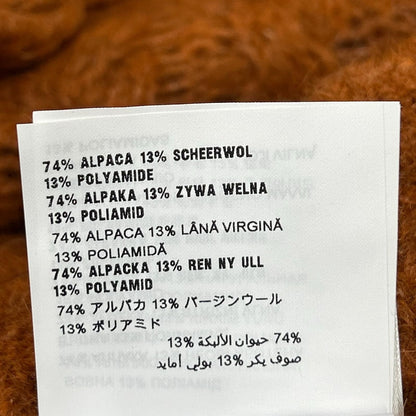 74% ALPACA 13% SCHEERWOL
13% POLYAMIDE
74% ALPAKA 13% ZYWA WELNA
13% POLIAMID
74% ALPACA 13% LÂNĂ VIRGINĂ
13% POLIAMIDĂ
74% ALPACKA 13% REN NY ULL
13% POLYAMID
74% アルパカ 13% バージンウール
13% ポリアミド
74% حيوان الالبكة 13%
صوف بكر 13% بولي أمايد